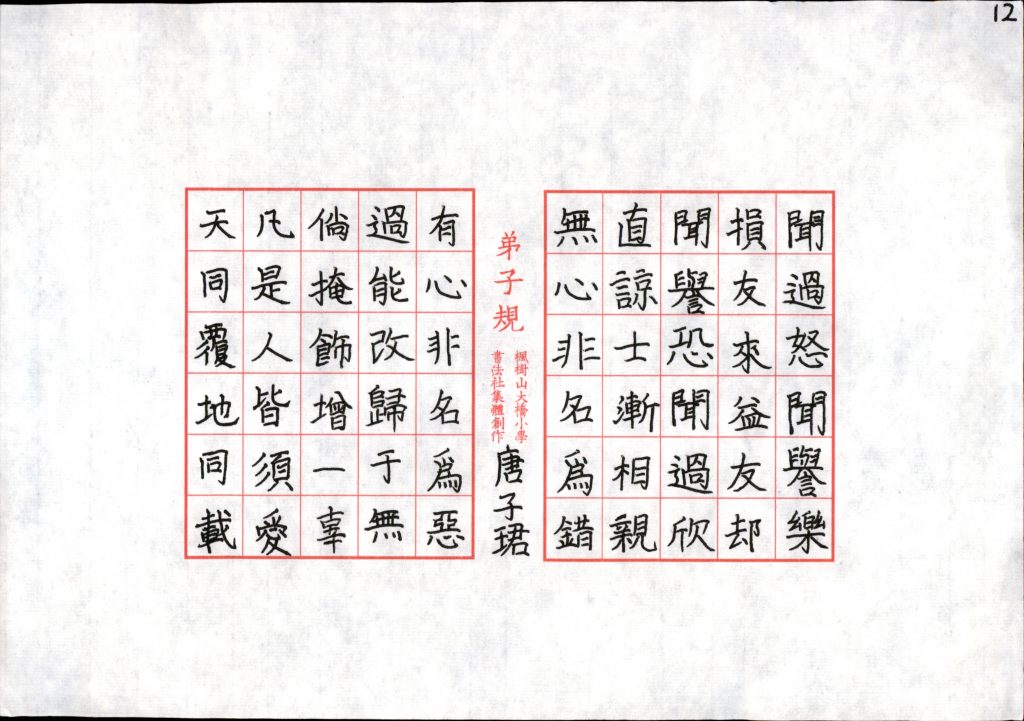 12
聞過怒聞譽樂
損友來益友却
聞譽恐聞過欣
直諒士漸相親
無心非名爲錯
弟子規
楓樹山大橋小學
書法社集體創作
唐子珺
有心非名爲惡
過能改歸于無
倘掩飾增一辜
凡是人皆須愛
天同覆地同載